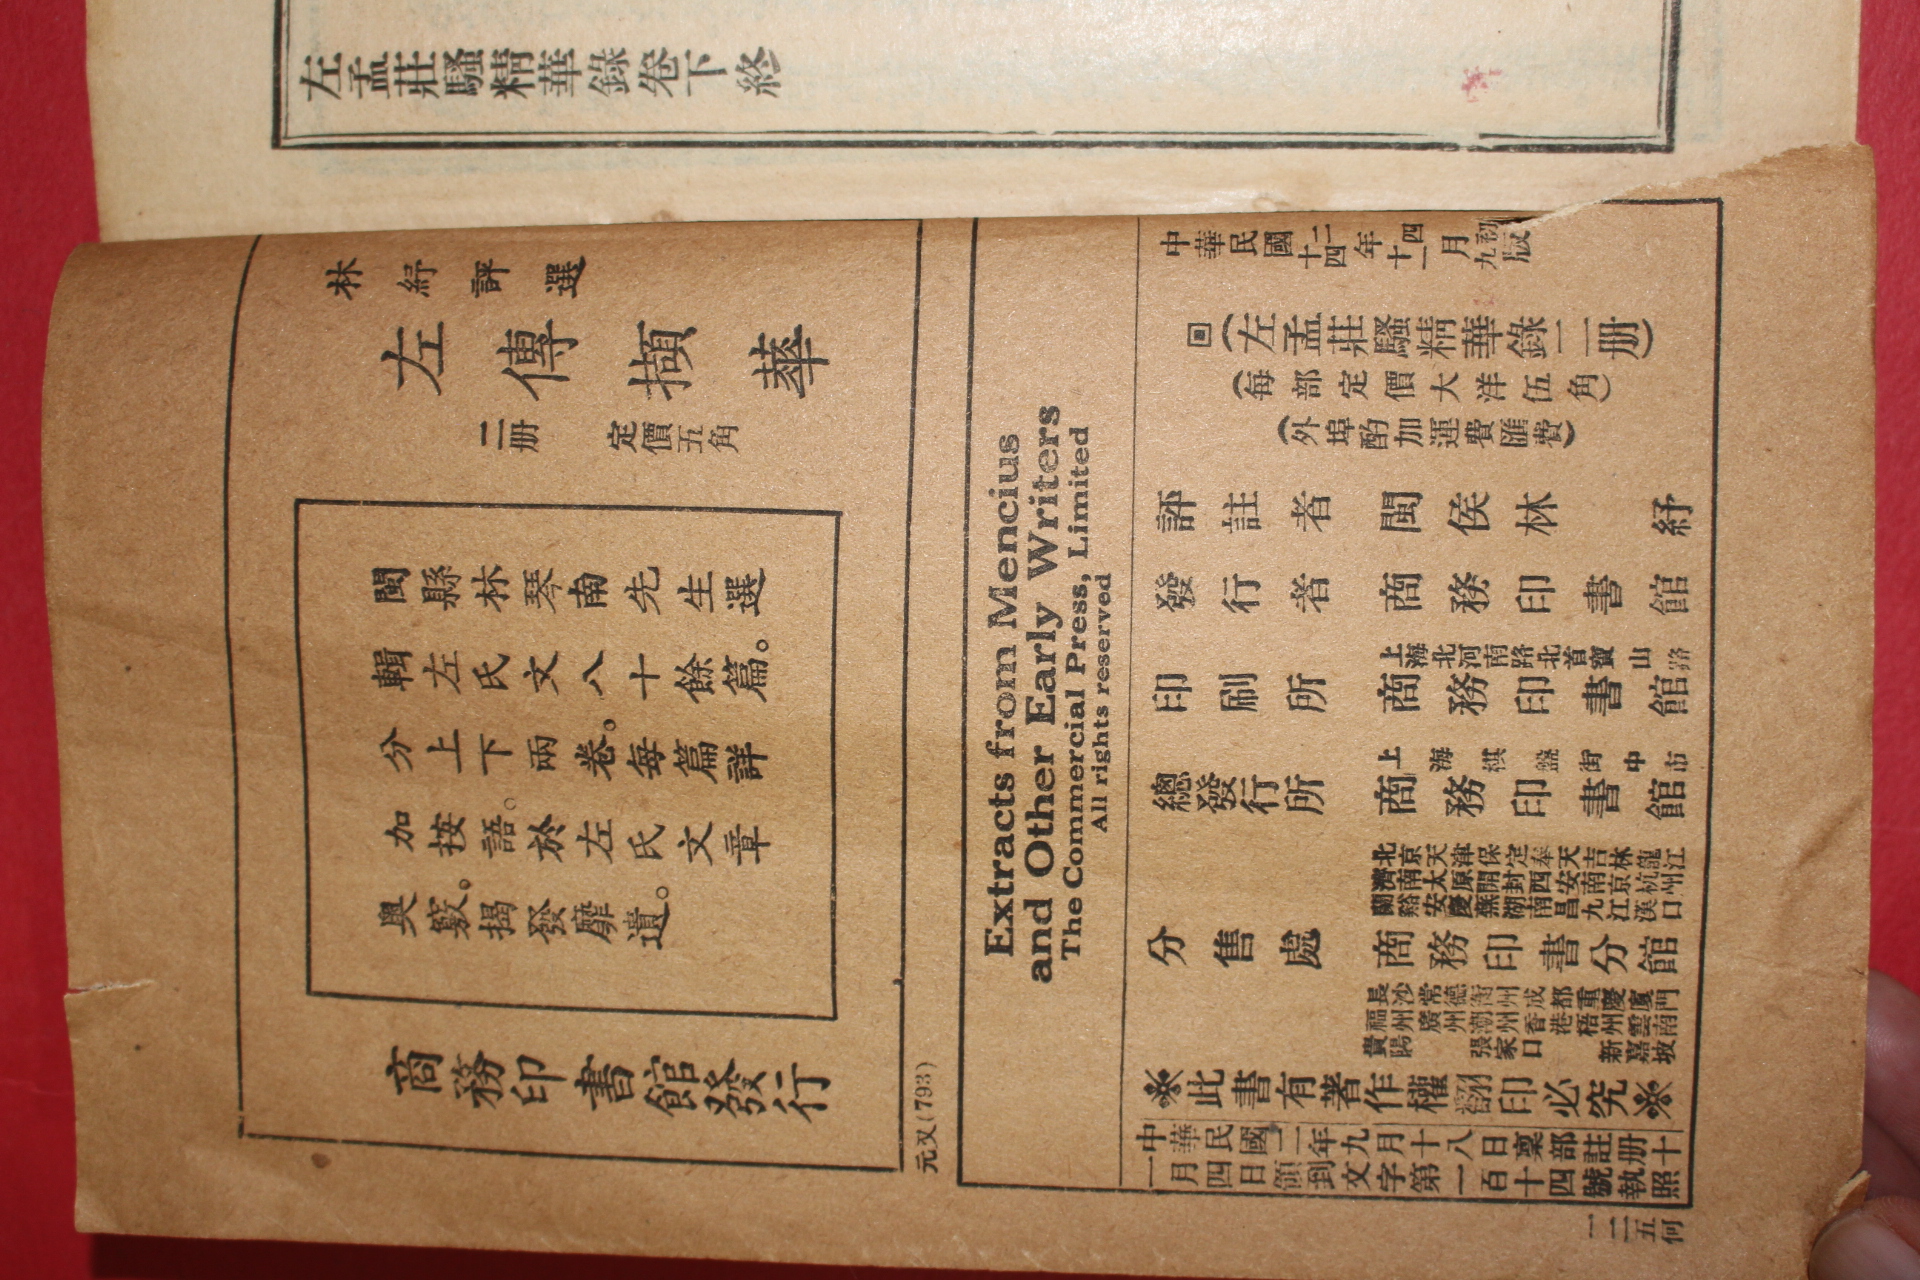 左孟莊騷精華錄卷下終
林紓評選
左傳擷華
二册 定價五角
閩縣林琴南先生選
輯左氏文八十餘篇。
分上下兩卷。每篇詳
加按語。於左氏文章
奥竅。揭發靡遺。
商務印書館發行
元又(793)
Extracts from Mencius
and Other Early Writers
The Commercial Press, Limited
All rights reserved
中華民國二年四月初版
十四 十一 九
回(左孟莊騷精華錄二册)
(每部定價大洋伍角)
(外埠酌加運費匯費)
評註者 閩侯林紓
發行者 商務印書館
上海北河南路北首寶山路
印刷所 商務印書館
上海棋盤街中市
總發行所 商務印書館
北京天津保定奉天吉林龍江
濟南太原開封西安南京杭州
蘭谿安慶蕪湖南昌九江漢口
分售處 商務印書分館
長沙常德衡州成都重慶廈門
福州廣州潮州香港梧州雲南
貴陽 張家口 新嘉坡
※此書有著作權翻印必究※
中華民國二年九月十八日稟部註册十
一月四日領到文字第一百十四號執照
一二五何